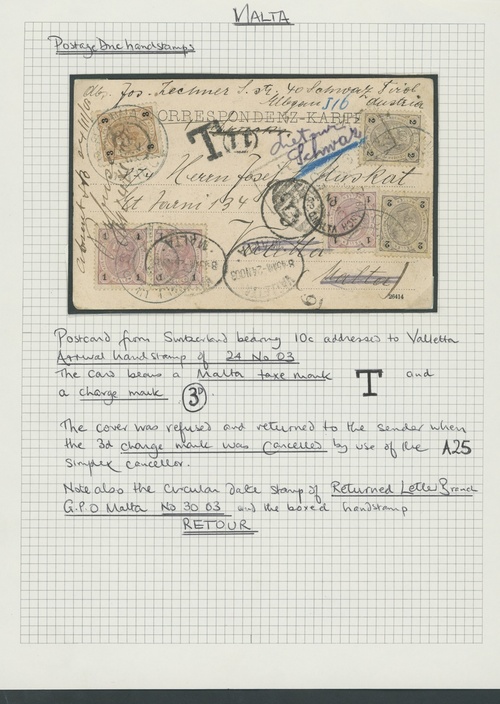 MALTA
Postage Due handstamps
Jos. Lechner S. Nr. 40 Schwaz Tirol
516 Austria
CORRESPONDENZ-KARTE
T
retour
Schwaz
Herrn Josef
Malta
26414
Postcard from Switzerland bearing 10c addressed to Valletta
Arrival handstamp of 24 No 03
The card bears a Malta taxe mark T and
a charge mark 3D.
The cover was refused and returned to the sender when
the 3d charge mark was cancelled by use of the A25
simplex canceller.
Note also the circular date stamp of Returned Letter Branch
G.P.O Malta No 30 03 and the boxed handstamp
RETOUR